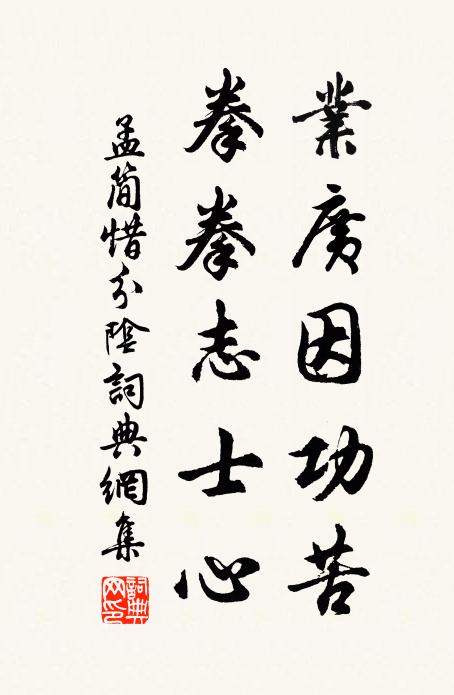 業廣因功苦
拳拳志士心
孟簡惜分陰詞典網集
詞典網印